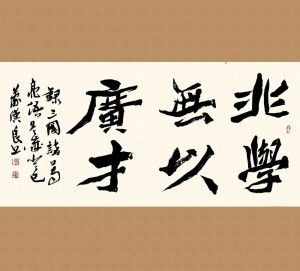 非學
無以
廣才
錄三國諸葛
亮語